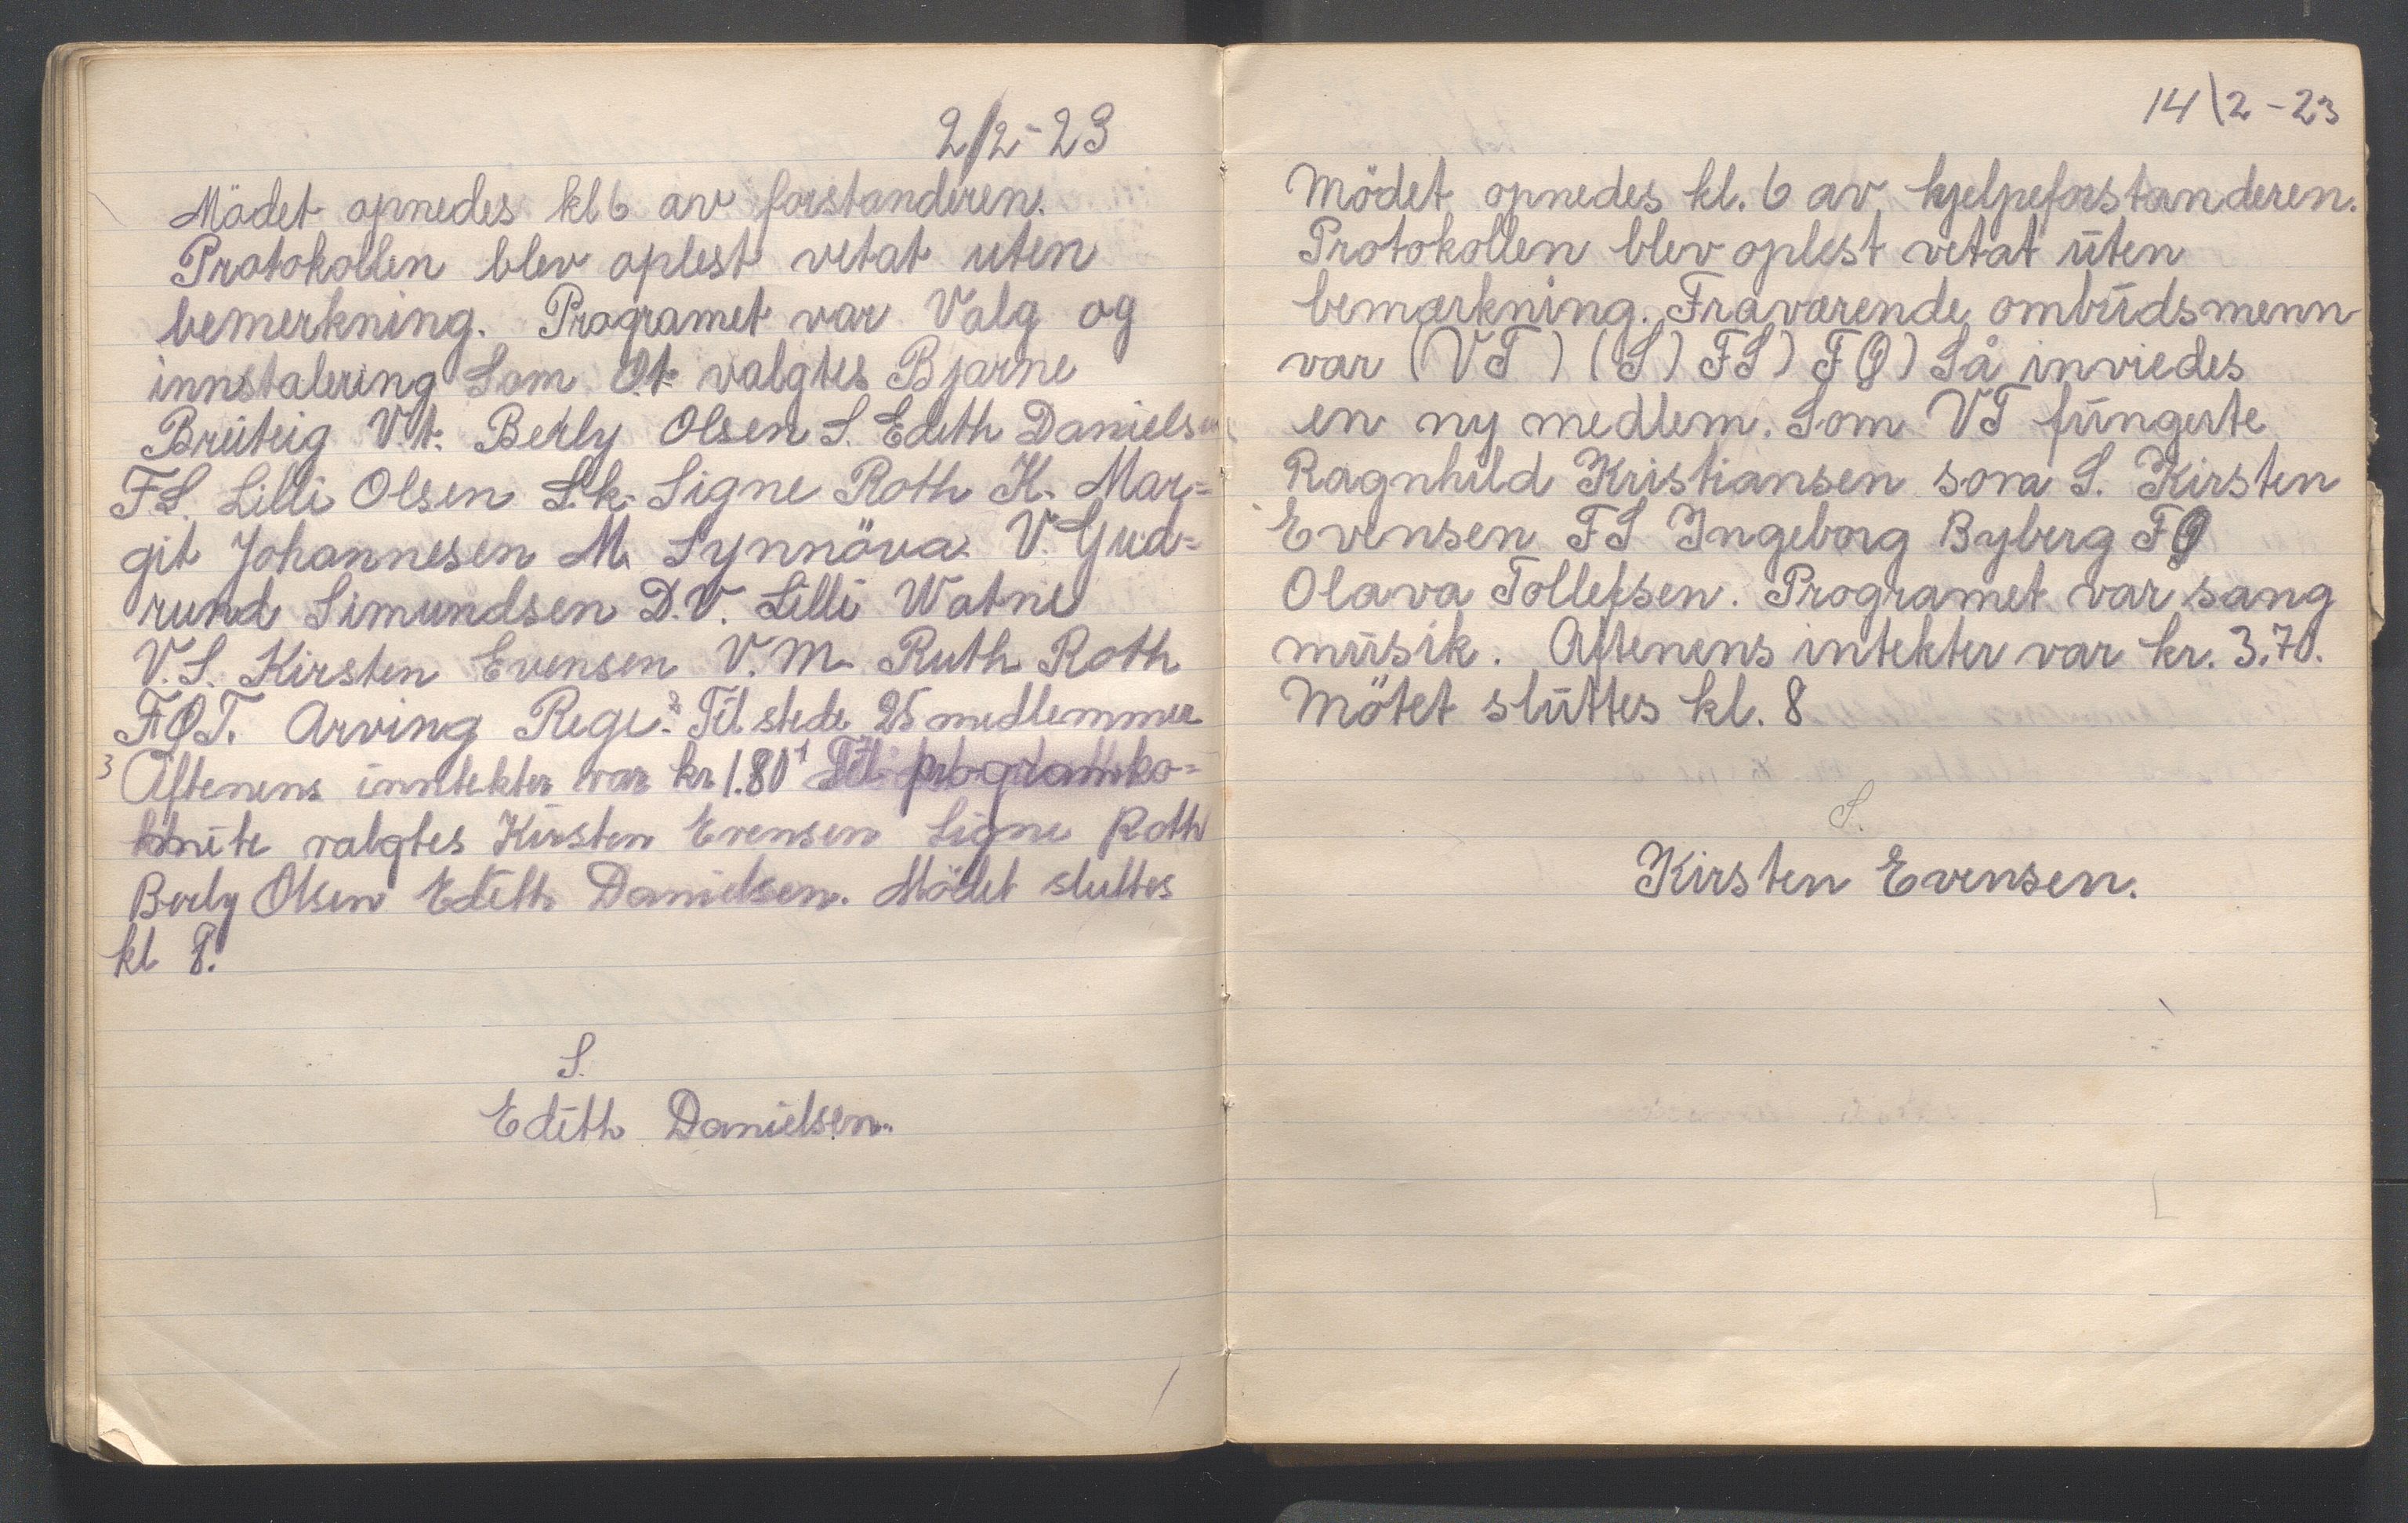 2/2-23
Mödet opnedes kl 6 av forstanderen.
Protokollen blev oplest vetat uten
bemerkning. Programet var Valg og
innstalering Som Ø.t. valgtes Bjarne
Breiteig V.t. Berly Olsen S. Edith Danielsen
F.S. Lilli Olsen S.k. Signe Roth K. Mar-
git Johannesen M. Synnöva V. Gud-
rund Simundsen D.V. Lilli Watne
V.S. Kirsten Evensen V.M. Ruth Roth
F.Ø.T. Arving Rege. 2 Til stede 25 medlemmer
3 Aftenens inntekter var kr 1.80 1 Til programko-
mite valgtes Kirsten Evensen Signe Roth
Berly Olsen Edith Danielsen. Mödet sluttes
kl 8.
S.
Edith Danielsen.
14/2-23
Mödet opnedes kl. 6 av hjelpeforstanderen.
Protokollen blev oplest vetat uten
bemærkning. Fraværende ombudsmenn
var (VT) (S) FS) FØ) Så inviedes
en ny medlem. Som VT fungerte
Ragnhild Kristiansen som S. Kirsten
Evensen FS Ingeborg Byberg FØ
Olava Tollefsen. Programet var sang
musik. Aftenens intekter var kr. 3.70.
Mötet sluttes kl. 8
S.
Kirsten Evensen.